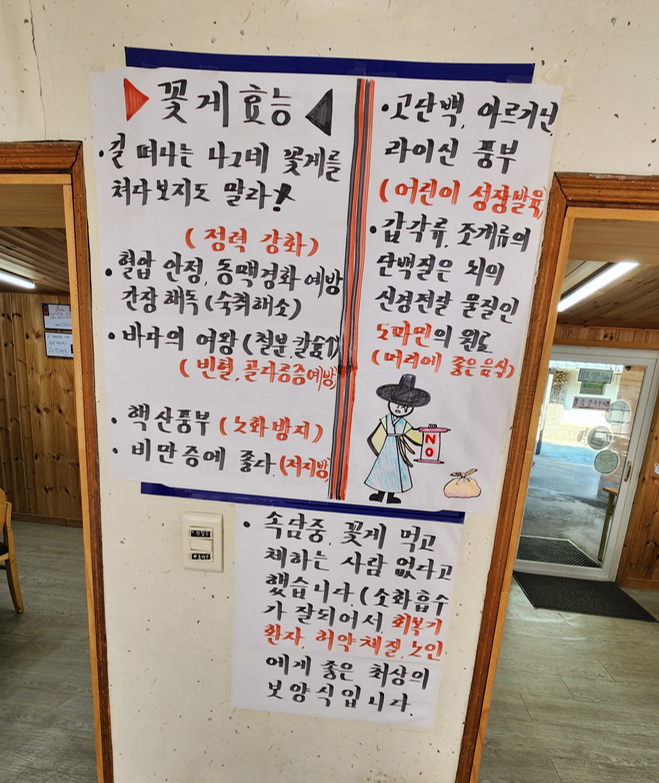 꽃게효능
· 길 떠나는 나그네 꽃게를
쳐다보지도 말라!
(정력 강화)
· 혈압 안정, 동맥경화 예방
간장 해독 (숙취해소)
· 바다의 여왕 (철분, 칼슘1)
(빈혈, 골다공증예방)
· 핵산풍부 (노화방지)
· 비만증에 좋다. (저지방)
· 고단백, 아르기닌,
라이신 풍부
(어린이 성장발육)
· 갑각류, 조개류의
단백질은 뇌의
신경전달 물질인
도파민의 원료
(머리에 좋은음식)
NO
· 속담중, 꽃게 먹고
체하는 사람 없다고
했습니다 (소화흡수
가 잘되어서, 회복기
환자, 허약체질, 노인
에게 좋은 최상의
보양식입니다.